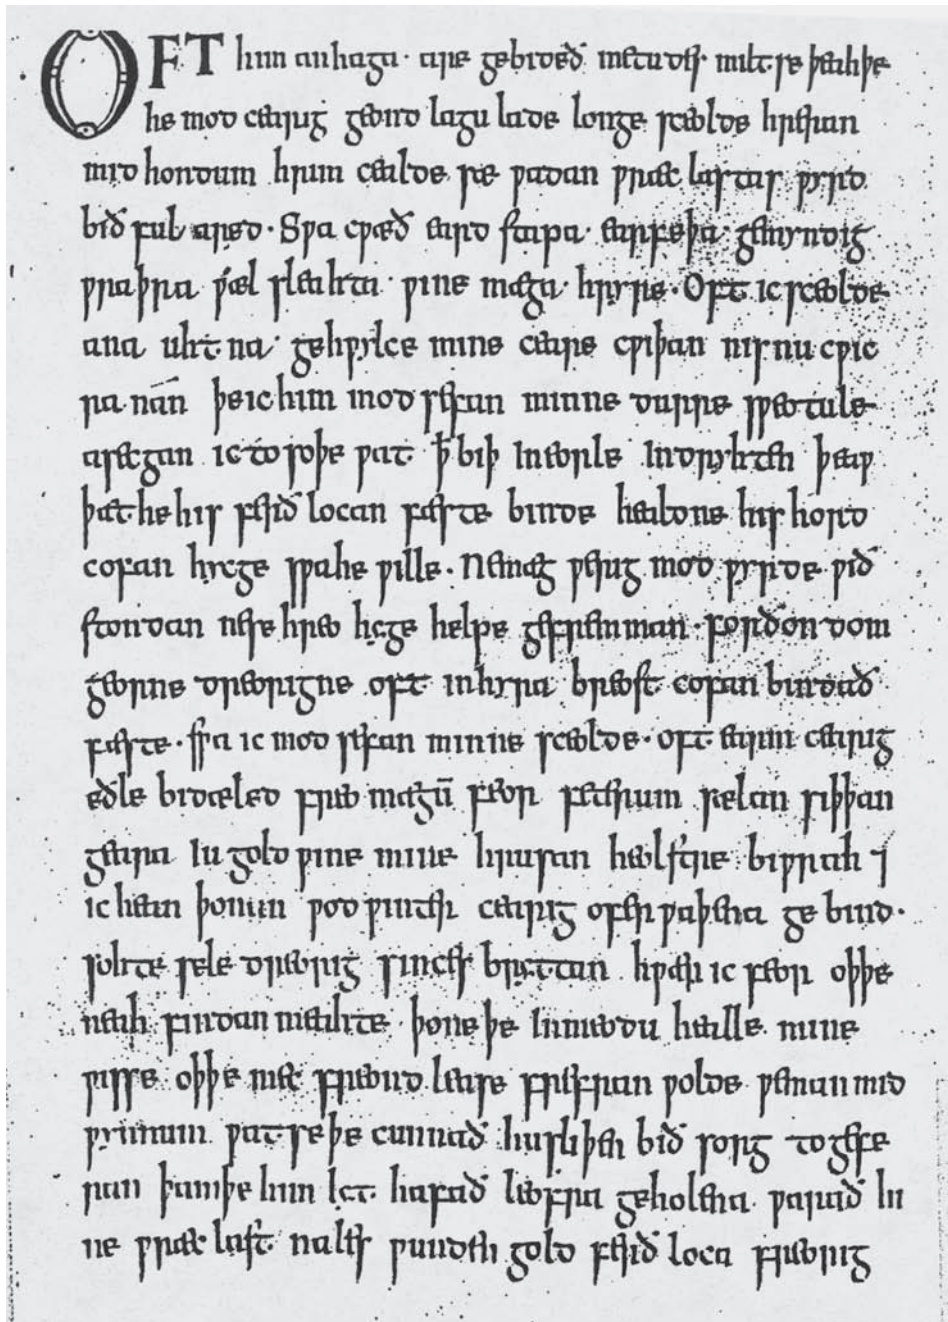 OFT him anhaga · are gebideð metudes miltse þeahþe
he mod cearig geond lagu lade longe sceolde hreran
mid hondum hrim cealde sæ ƿadan ƿræc lastas ƿyrd
bið ful aræd · Sƿa cƿæð eard stapa · earfeþa · gemyndig
ƿraþra ƿæl sleahta · ƿine mæga · hryre · Oft ic sceolde
ana uhtna gehƿylce mine ceare cƿiþan nis nu cƿic
ra nan þe ic him mod sefan minne durre sƿeotule
asecgan ic to soþe ƿat ꝥ biþ in eorle indryhten þeaƿ
þæt he his ferð locan fæste binde healdne his hord
cofan hycge sƿa he ƿille · Ne mæg ƿerig mod ƿyrde ƿið
stondan ne se hreo hyge helpe gefremman · forðon dom
georne dreorigne oft in hyra breost cofan bindað
fæste · sƿa ic mod sefan minne sceolde · oft earm cearig
eðle bidæled freo mægū feor feterum sælan siþþan
geara iu gold ƿine mine hrusan heolstre biƿrah ⁊
ic hean þonan ƿod ƿinter cearig ofer ƿaþena ge bind ·
sohte sele dreorig sinces bryttan hƿær ic feor oþþe
neah findan meahte þone þe in meodu healle mine
ƿisse oþþe mec freond lease frefran ƿolde ƿeman mid
ƿynnum ƿat se þe cunnað hu sliþen bið sorg to gefe
ran þam þe him lyt hafað leofra geholena ƿarað hi
ne ƿræc last nales ƿunden gold ferð loca freorig